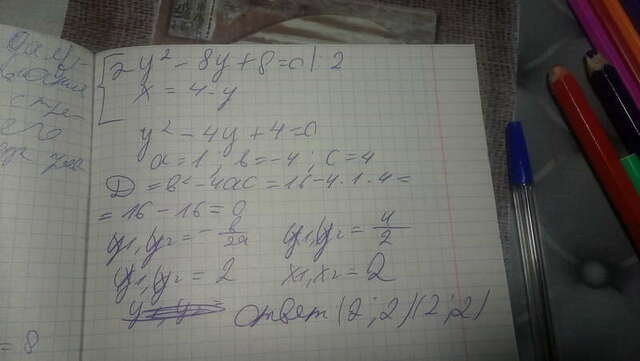 2y² - 8y + 8 = 0 | : 2
x = 4 - y
y² - 4y + 4 = 0
a = 1; в = -4; c = 4
D = в² - 4ac = 16 - 4·1·4 =
= 16 - 16 = 0
y₁,y₂ = - в/2a y₁,y₂ = 4/2
y₁,y₂ = 2 x₁,x₂ = 2
ответ (2;2)(2;2)
= 8